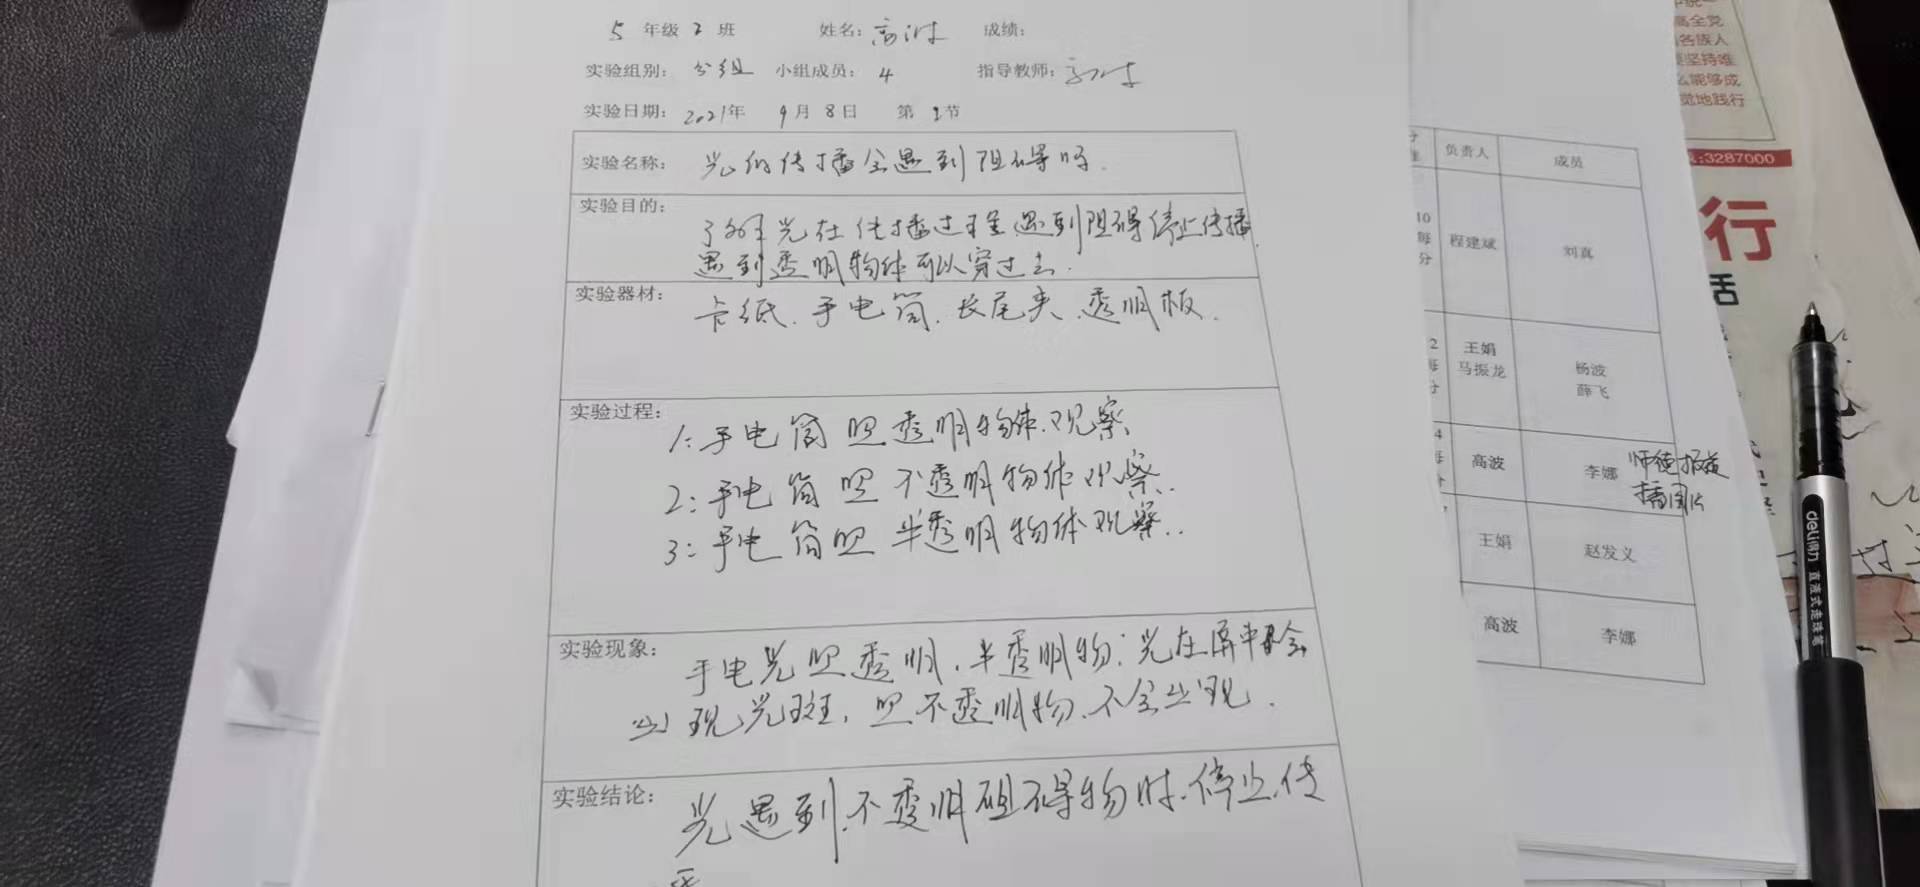 5 年级 2 班 姓名: 高波 成绩:
实验组别: 分组 小组成员: 4 指导教师:
实验日期: 2021年 9月 8日 第 2节
实验名称: 光的传播会遇到阻碍吗.
实验目的:
了解光在传播过程遇到阻碍停止传播.
遇到透明物体可以穿过去.
实验器材: 卡纸. 手电筒. 长尾夹. 透明板.
实验过程:
1: 手电筒照透明物体.观察
2: 手电筒照不透明物体观察.
3: 手电筒照半透明物体观察..
实验现象:
手电光照透明.半透明物:光在屏中会
出现光斑, 照不透明物.不会出现.
实验结论: 光遇到.不透明阻碍物时.停止传
负责人 成员
10
每
分
程建斌 刘真
2
王娟
马振龙
杨波
薛飞
4
高波 李娜 师德报道
插图片
王娟 赵发义
高波 李娜
高全党
各族人
坚持
么能够成
觉地践行
:3287000
行
活
deli得力 直液式走珠笔